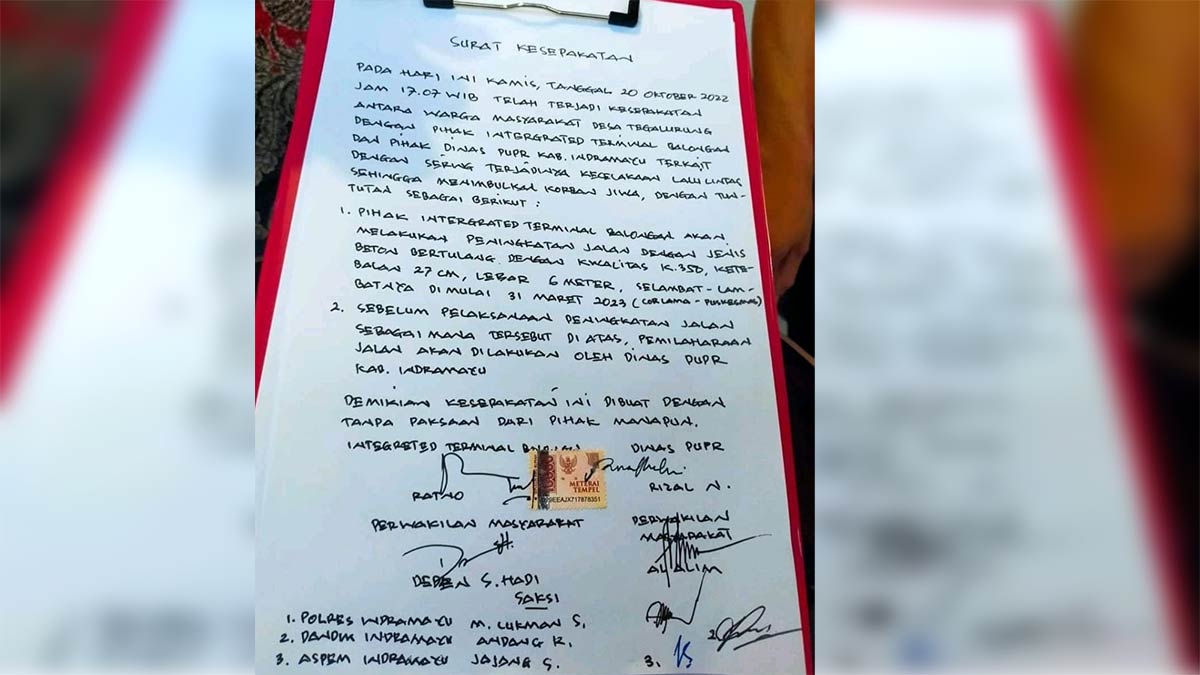 SURAT KESEPAKATAN
PADA HARI INI KAMIS, TANGGAL 20 OKTOBER 2022
JAM 17.07 WIB TELAH TERJADI KESEPAKATAN
ANTARA WARGA MASYARAKAT DESA TEGALURUNG
DENGAN PIHAK INTERGRATED TERMINAL BALONGAN
DAN PIHAK DINAS PUPR KAB. INDRAMAYU TERKAIT
DENGAN SERING TERJADINYA KECELAKAAN LALU LINTAS
SEHINGGA MENIMBULKAN KORBAN JIWA, DENGAN TUN-
TUTAN SEBAGAI BERIKUT :
1. PIHAK INTERGRATED TERMINAL BALONGAN AKAN
MELAKUKAN PENINGKATAN JALAN DENGAN JENIS
BETON BERTULANG DENGAN KWALITAS K.350, KETE-
BALAN 27 CM, LEBAR 6 METER, SELAMBAT-LAM-
BATNYA DIMULAI 31 MARET 2023 (CORLAMA - PUSKESMAS)
2. SEBELUM PELAKSANAAN PENINGKATAN JALAN
SEBAGAI MANA TERSEBUT DI ATAS, PEMILAHARAAN
JALAN AKAN DILAKUKAN OLEH DINAS PUPR
KAB. INDRAMAYU
DEMIKIAN KESEPAKATAN INI DIBUAT DENGAN
TANPA PAKSAAN DARI PIHAK MANAPUN.
INTEGRATED TERMINAL DINAS PUPR
10000
METERAI
TEMPEL
EEAJX717878351
RATNO RIZAL N.
PERWAKILAN MASYARAKAT PERWAKILAN
MASYARAKAT
DEBEN S. HADI ALALIM
SAKSI
1. POLRES INDRAMAYU M. LUKMAN S.
2. DANDIM INDRAMAYU ANDANG R. 2
3. ASPEM INDRAMAYU JAJANG S. 3.